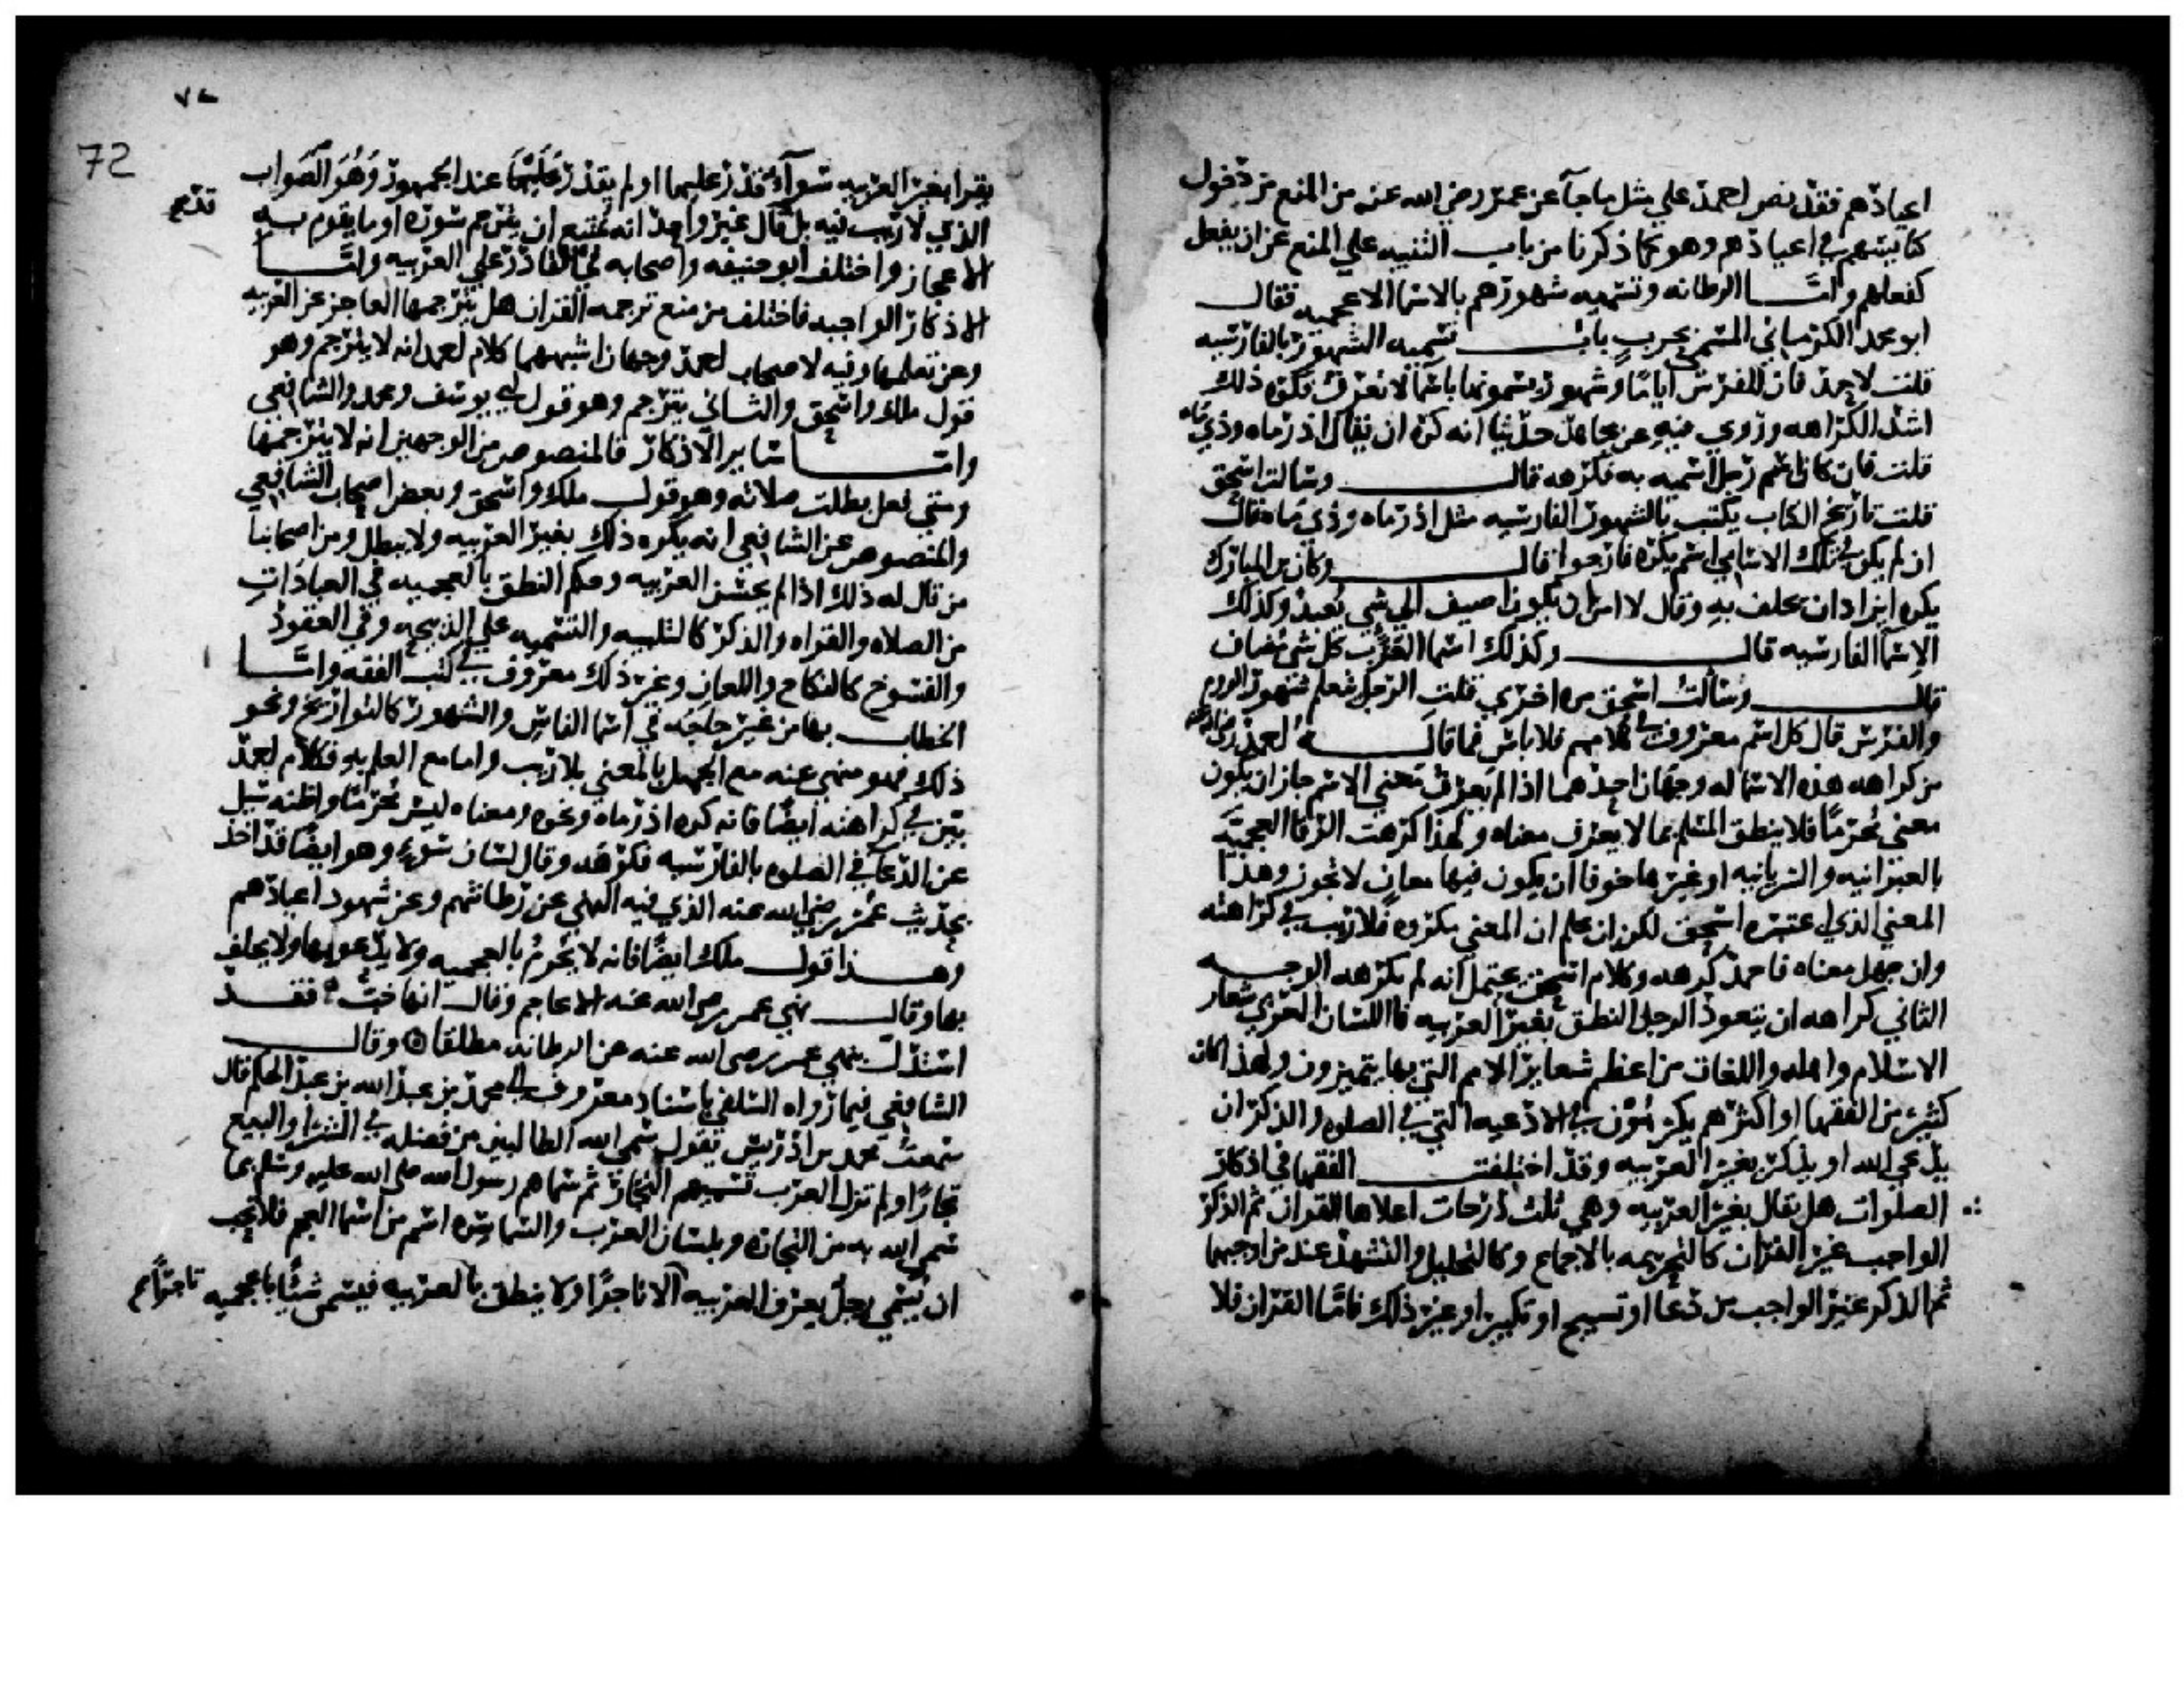 اعيادهم فقد نص احمد علي مثل ما جآ عن عمر رضي الله عنه من المنع من دخول
كنايسهم في اعيادهم وهو كما ذكرنا من باب التنبيه علي المنع عن ان يفعل
كفعلهم وامّا الرطانه وتسميه شهورهم بالاسما الاعجميه فقال
ابو محمد الكرماني المسمي بحرب باب تسميه الشهور بالفارسيه
قلت لاحمد فان للفرس اياما وشهور يسمونها باسما لا تعرف فكره ذلك
اشد الكراهه وروي فيه عن مجاهد حديثا انه كره ان يقال اذرماه وذي ماه
قلت فان كان اسم رجل اسميه به فكرهه قال وسالت اسحق
قلت تاريخ الكتاب يكتب بالشهور الفارسيه مثل اذرماه وذي ماه قال
ان لم يكن في تلك الاسامي اسم يكره فارجوا قال وكان بن المبارك
يكره ايزدان يحلف به وقال لا امن ان يكون اضيف الي شي يعبد وكذلك
الاسمآ الفارسيه قال وكذلك اسما العرب كل شي مضاف
قال وسالت اسحق مره اخري قلت الرجل يتعلم شهور الروم
والفرس قال كل اسم معروف في كلامهم فلا باس فما قاله احمد رضي الله عنه
من كراهه هذه الاسما له وجهان احدهما اذا لم يعرف معني الاسم جاز ان يكون
معني محرمًا فلا ينطق المسلم بما لا يعرف معناه ولهذا كرهت الرقا العجميّه
بالعبرانيه والسريانيه او غيرها خوفا ان يكون فيها معانٍ لا تجوز وهذا
المعني الذي اعتبره اسحق لكن ان علم ان المعني مكروه فلا ريب في كراهته
وان جهل معناه فاحمد كرهه وكلام اسحق يحتمل انه لم يكرهه الوجه
الثاني كراهه ان يتعود الرجل النطق بغير العربيه فان اللسان العربي شعار
الاسلام واهله واللغات من اعظم شعاير الامم التي بها يتميزون ولهذا كان
كثير من الفقها او اكثرهم يكرهون في الادعيه التي في الصلوه والذكر ان
يدعي الله او يذكر بغير العربيه وقد اختلفت الفقها في اذكار
الصلوات هل يقال بغير العربيه وهي ثلث درجات اعلاها القران ثم الذكر
الواجب غير القران كالتحريمه بالاجماع وكالتحليل والتشهد عند من اوجبهما
ثم الذكر غير الواجب من دعا او تسبيح او تكبير او غير ذلك فامّا القران فلا
٧٢
72
يقرا بغير العربيه سوآء قدر عليها او لم يقدر عليها عند الجمهور وهو الصواب
الذي لا ريب فيه بل قال غير واحد انه يمتنع ان يترجم سوره او ما يقوم به
الاعجاز واختلف ابو حنيفه واصحابه في القادر علي العربيه وامّا
الاذكار الواجبه فاختلف من منع ترجمه القران هل يترجمها العاجز عن العربيه
وعن تعلمها وفيه لاصحاب احمد وجهان اشبههما كلام احمد انه لا يترجم وهو
قول ملك واسحق والثاني يترجم وهو قول ابي يوسف ومحمد والشافعي
وامّا ساير الاذكار فالمنصوص من الوجهين انه لا يترجمها
ومتي فعل بطلت صلاته وهو قول ملك واسحق وبعض اصحاب الشافعي
والمنصوص عن الشافعي انه يكره ذلك بغير العربيه ولا يبطل ومن اصحابنا
من قال له ذلك اذا لم يحسن العربيه وحكم النطق بالعجميه في العبادات
من الصلاه والقراه والذكر كالتلبيه والتسميه علي الذبيحه وفي العقود
والفسوخ كالنكاح واللعان وغير ذلك معروف في كتب الفقه وامّا
الخطاب بها من غير حاجه في اسما الناس والشهور كالتواريخ ونحو
ذلك فهو منهي عنه مع الجهل بالمعني بلا ريب واما مع العلم به فكلام احمد
بيّن في كراهته ايضًا فانه كره اذرماه ونحوه ومعناه ليس محرمًا واظنه سيل
عن الدعآ في الصلوه بالفارسيه فكرهه وقال لسان سوءٍ وهو ايضًا قد اخذ
بحديث عمر رضي الله عنه الذي فيه النهي عن رطانتهم وعن شهود اعيادهم
وهذا قول ملك ايضًا فانه لا يحرم بالعجميه ولا يدعو بها ولا يحلف
بها وقال نهي عمر رضي الله عنه عن رطانه الاعاجم وقال انها خبّ فقد
استدل بنهي عمر رضي الله عنه عن الرطانه مطلقا وقال
الشافعي فيما رواه السلفي باسناد معروف الي محمد بن عبد الله بن عبد الحكم قال
سمعت محمد بن ادريس يقول سمي الله الطالبين من فضله في الشرا والبيع
تجارًا ولم تزل العرب تسميهم التجار ثم سماهم رسول الله صلى الله عليه وسلم بما
سمي الله به من التجاره وبلسان العرب والسماسره اسم من اسما العجم فلا نحب
ان يسمي رجل يعرف العربيه الا تاجرًا ولا ينطق بالعربيه فيسمى شيًا باعجميه